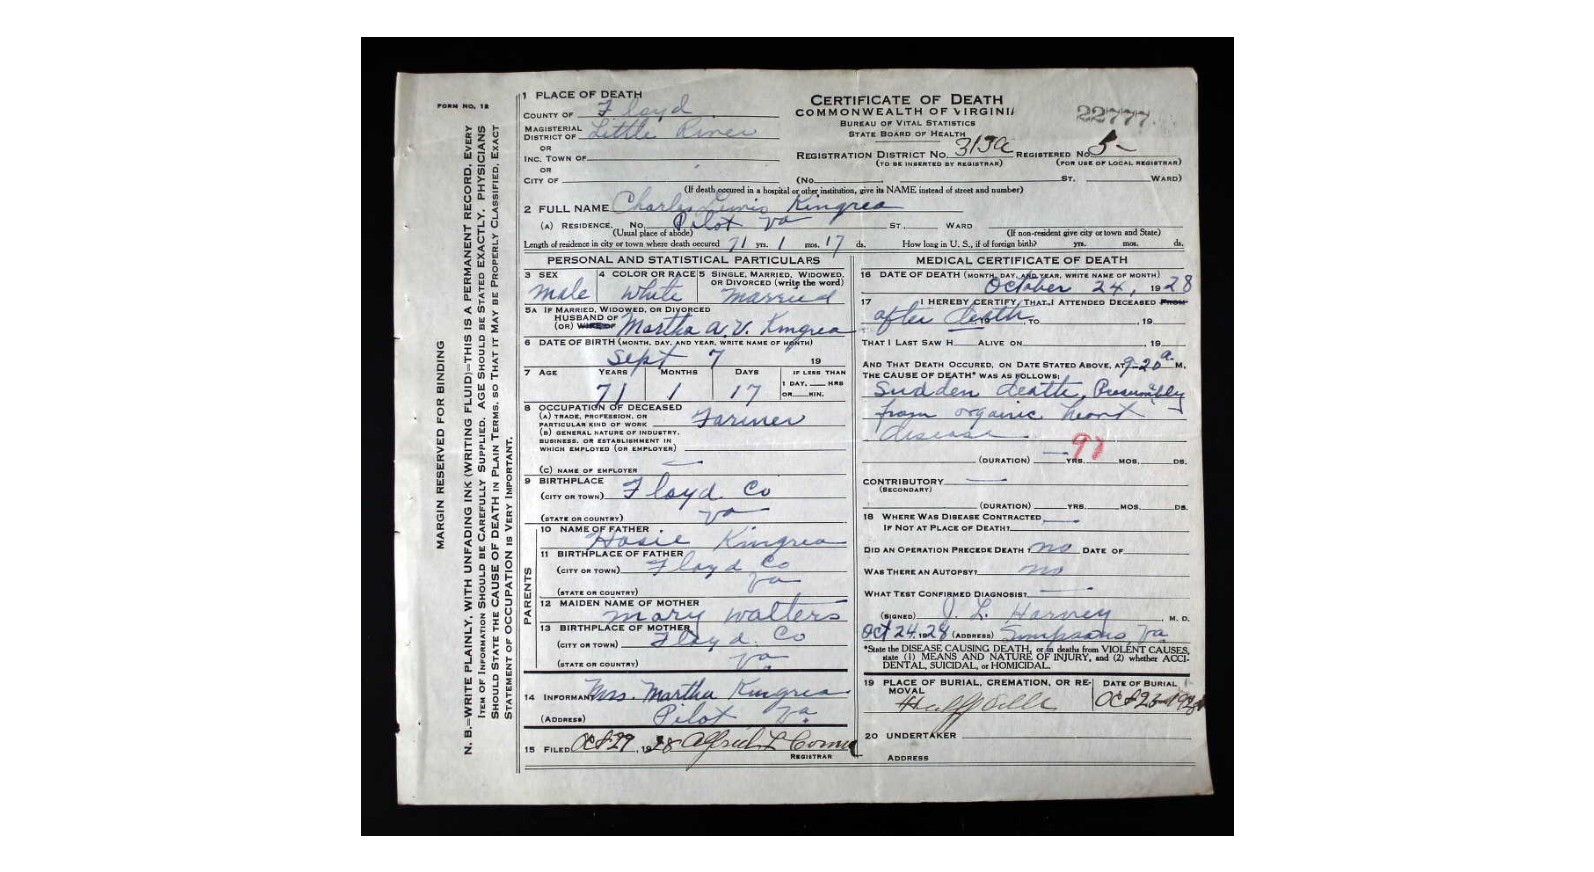 FORM NO. 12
MARGIN RESERVED FOR BINDING
N. B.—WRITE PLAINLY, WITH UNFADING INK (WRITING FLUID)—THIS IS A PERMANENT RECORD. EVERY
ITEM OF INFORMATION SHOULD BE CAREFULLY SUPPLIED. AGE SHOULD BE STATED EXACTLY. PHYSICIANS
SHOULD STATE THE CAUSE OF DEATH IN PLAIN TERMS, SO THAT IT MAY BE PROPERLY CLASSIFIED. EXACT
STATEMENT OF OCCUPATION IS VERY IMPORTANT.
1 PLACE OF DEATH
COUNTY OF Floyd
MAGISTERIAL
DISTRICT OF Little River
OR
INC. TOWN OF
OR
CITY OF
CERTIFICATE OF DEATH
COMMONWEALTH OF VIRGINIA
BUREAU OF VITAL STATISTICS
STATE BOARD OF HEALTH
22777
REGISTRATION DISTRICT NO. 313a REGISTERED NO. 5
(TO BE INSERTED BY REGISTRAR) (FOR USE OF LOCAL REGISTRAR)
(No. ST. WARD)
(If death occured in a hospital or other institution, give its NAME instead of street and number)
2 FULL NAME Charles Lewis Kingrea
(A) RESIDENCE. No. Pilot Va ST., WARD
(Usual place of abode) (If non-resident give city or town and State)
Length of residence in city or town where death occured 71 yrs. 1 mos. 17 ds. How long in U. S., if of foreign birth? yrs. mos. ds.
PERSONAL AND STATISTICAL PARTICULARS
3 SEX male
4 COLOR OR RACE White
5 SINGLE, MARRIED, WIDOWED, OR DIVORCED (write the word) Married
5A IF MARRIED, WIDOWED, OR DIVORCED
HUSBAND OF
(OR) WIFE OF Martha A. V. Kingrea
6 DATE OF BIRTH (MONTH, DAY, AND YEAR, WRITE NAME OF MONTH)
Sept 7 19
7 AGE YEARS MONTHS DAYS IF LESS THAN
71 1 17 1 DAY, HRS
OR MIN.
8 OCCUPATION OF DECEASED
(A) TRADE, PROFESSION, OR
PARTICULAR KIND OF WORK Farmer
(B) GENERAL NATURE OF INDUSTRY,
BUSINESS, OR ESTABLISHMENT IN
WHICH EMPLOYED (OR EMPLOYER)
(C) NAME OF EMPLOYER
9 BIRTHPLACE
(CITY OR TOWN) Floyd Co
(STATE OR COUNTRY) Va
PARENTS
10 NAME OF FATHER
Hosie Kingrea
11 BIRTHPLACE OF FATHER
(CITY OR TOWN) Floyd Co
(STATE OR COUNTRY) Va
12 MAIDEN NAME OF MOTHER
Mary Walters
13 BIRTHPLACE OF MOTHER
(CITY OR TOWN) Floyd Co
(STATE OR COUNTRY) Va
14 INFORMANT Mrs. Martha Kingrea
(ADDRESS) Pilot Va.
15 FILED Oct 29, 1928 Alfred L
REGISTRAR
MEDICAL CERTIFICATE OF DEATH
16 DATE OF DEATH (MONTH, DAY, AND YEAR, WRITE NAME OF MONTH)
October 24, 1928
17 I HEREBY CERTIFY, THAT I ATTENDED DECEASED FROM
after death, 19 , TO , 19
THAT I LAST SAW H ALIVE ON , 19
AND THAT DEATH OCCURED, ON DATE STATED ABOVE, AT 9-20 a. M.
THE CAUSE OF DEATH* WAS AS FOLLOWS:
Sudden death, Presumably
from organic heart
disease
97
(DURATION) YRS. MOS. DS.
CONTRIBUTORY
(SECONDARY)
(DURATION) YRS. MOS. DS.
18 WHERE WAS DISEASE CONTRACTED
IF NOT AT PLACE OF DEATH?
DID AN OPERATION PRECEDE DEATH? no DATE OF
WAS THERE AN AUTOPSY? no
WHAT TEST CONFIRMED DIAGNOSIS?
(SIGNED) J. L. Harvey, M. D.
Oct 24, 1928 (ADDRESS) Simpsons, Va.
*State the DISEASE CAUSING DEATH, or in deaths from VIOLENT CAUSES,
state (1) MEANS AND NATURE OF INJURY, and (2) whether ACCI-
DENTAL, SUICIDAL, or HOMICIDAL.
19 PLACE OF BURIAL, CREMATION, OR RE-
MOVAL
DATE OF BURIAL
Oct 25 1928
20 UNDERTAKER
ADDRESS